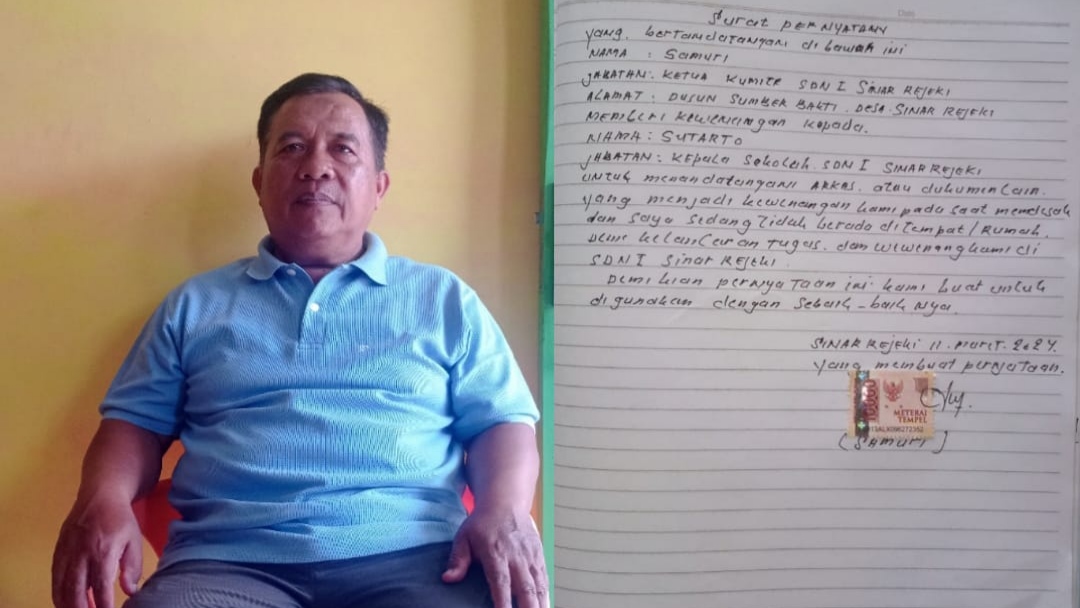 Date
Surat PERNYATAAN
yang bertandatangan di bawah ini
NAMA : Samuri
JABATAN : KETUA KUMITE SDN I SINAR REJEKI
ALAMAT : DUSUN SUMBER BAKTI . DESA . SINAR REJEKI
MEMBERI kewenangan kepada.
NAMA : SUTARTO
JABATAN : KEPALA Sekolah . SDN I SINAR REJEKI
UNTUK menandatangani ARKAS. atau dukumen lain.
yang menjadi kewenangan kami pada saat mendesak
dan saya sedang tidak berada di tempat / Rumah.
Demi kelancaran TUGAS. dan wewenang kami di
SDN I Sinar Rejeki.
Demikian pernyaTaan ini kami buat untuk
digunakan dengan sebaik-baik nya.
SINAR REJEKI 11. maret. 2024.
yang membuat pernyataan.
10000
METERAI
TEMPEL
(SAMURI)